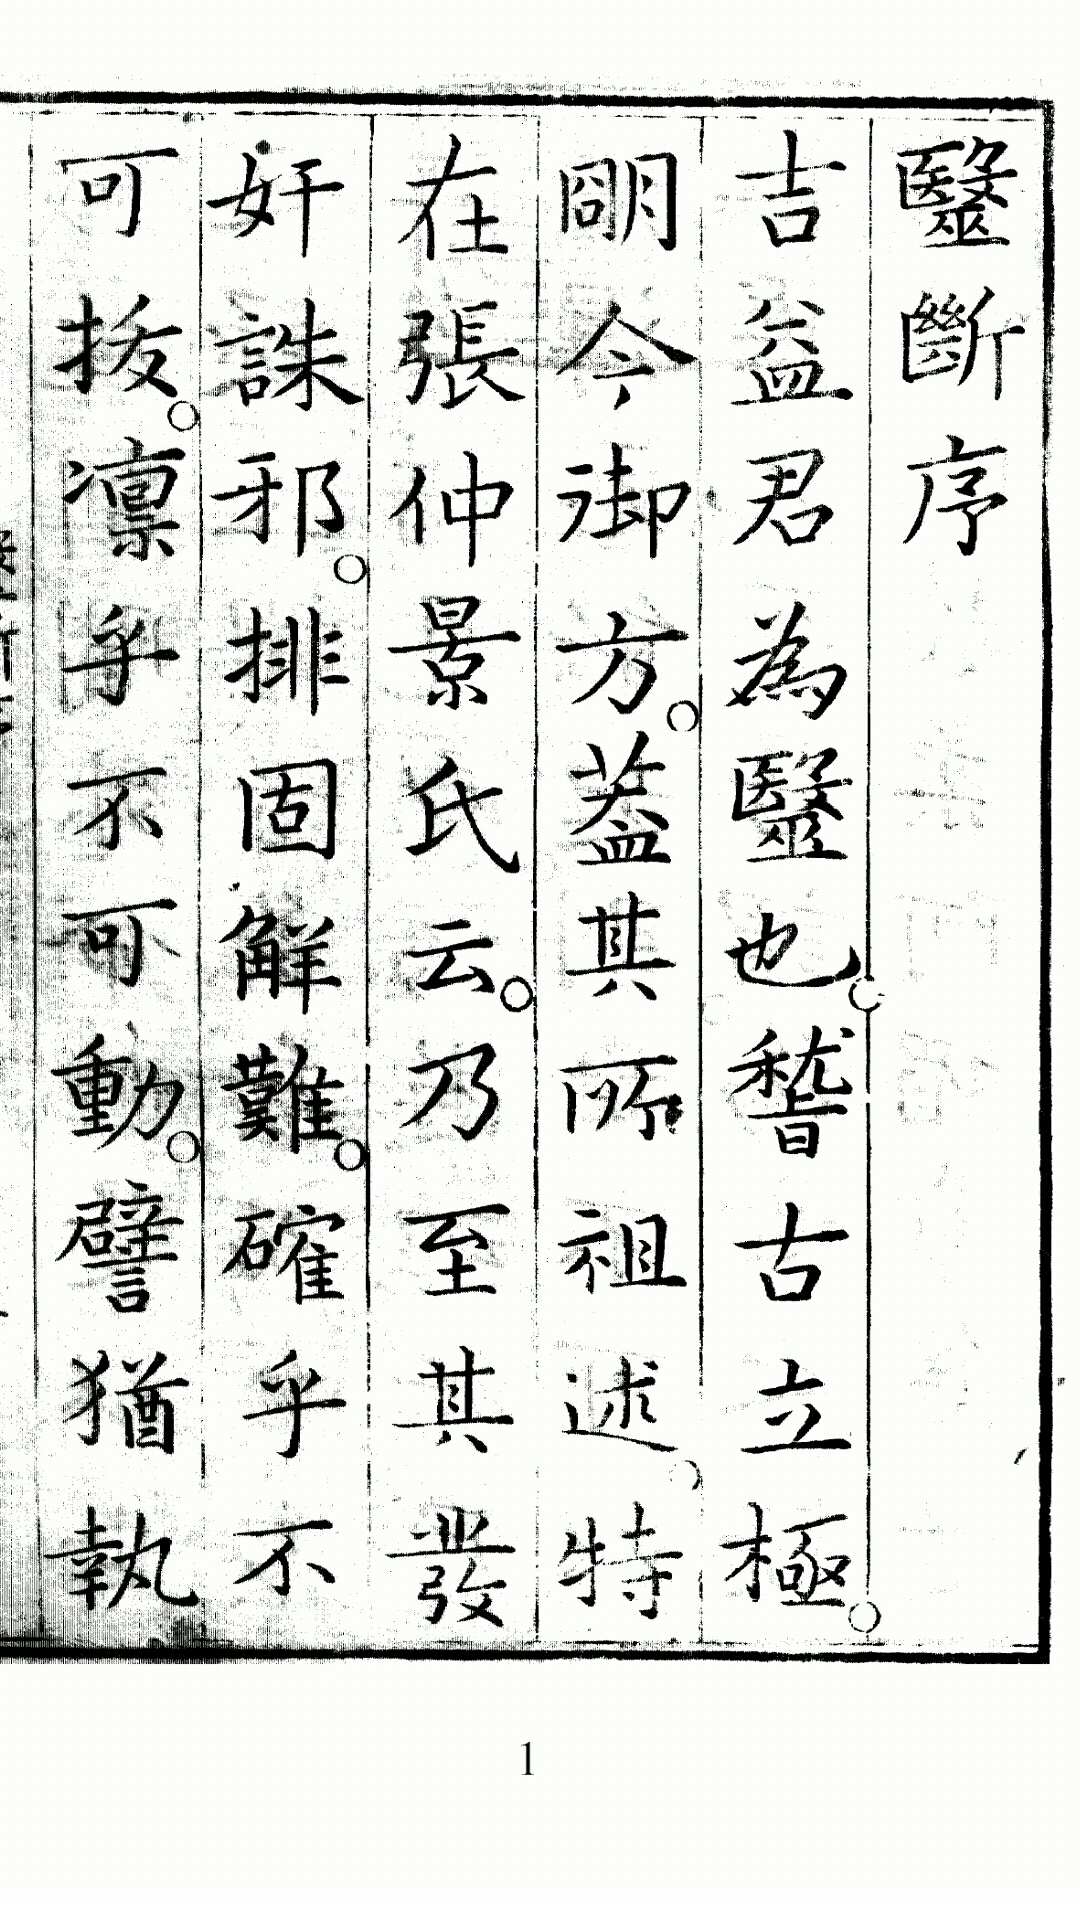 毉斷序
吉益君為毉也稽古立極
明今御方蓋其所祖述特
在張仲景氏云乃至其發
奸誅邪排固解難確乎不
可拔凛乎不可動譬猶執
1